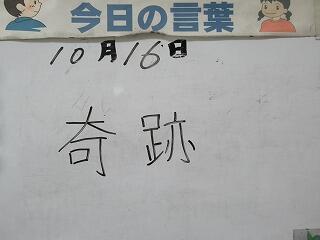 今日の言葉
10月16日
奇跡